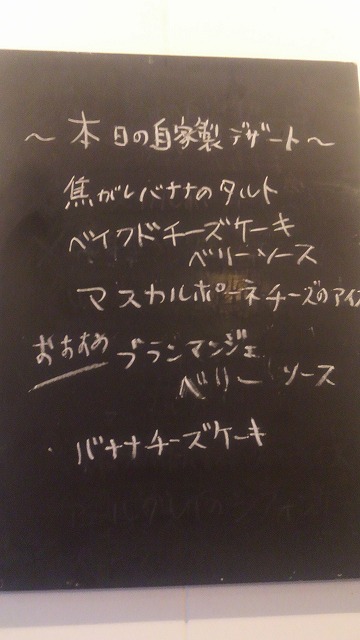 ～本日の自家製デザート～
焦がしバナナのタルト
ベイクドチーズケーキ
ベリーソース
マスカルポーネチーズのアイス
おすすめ ブランマンジェ
ベリーソース
・バナナチーズケーキ